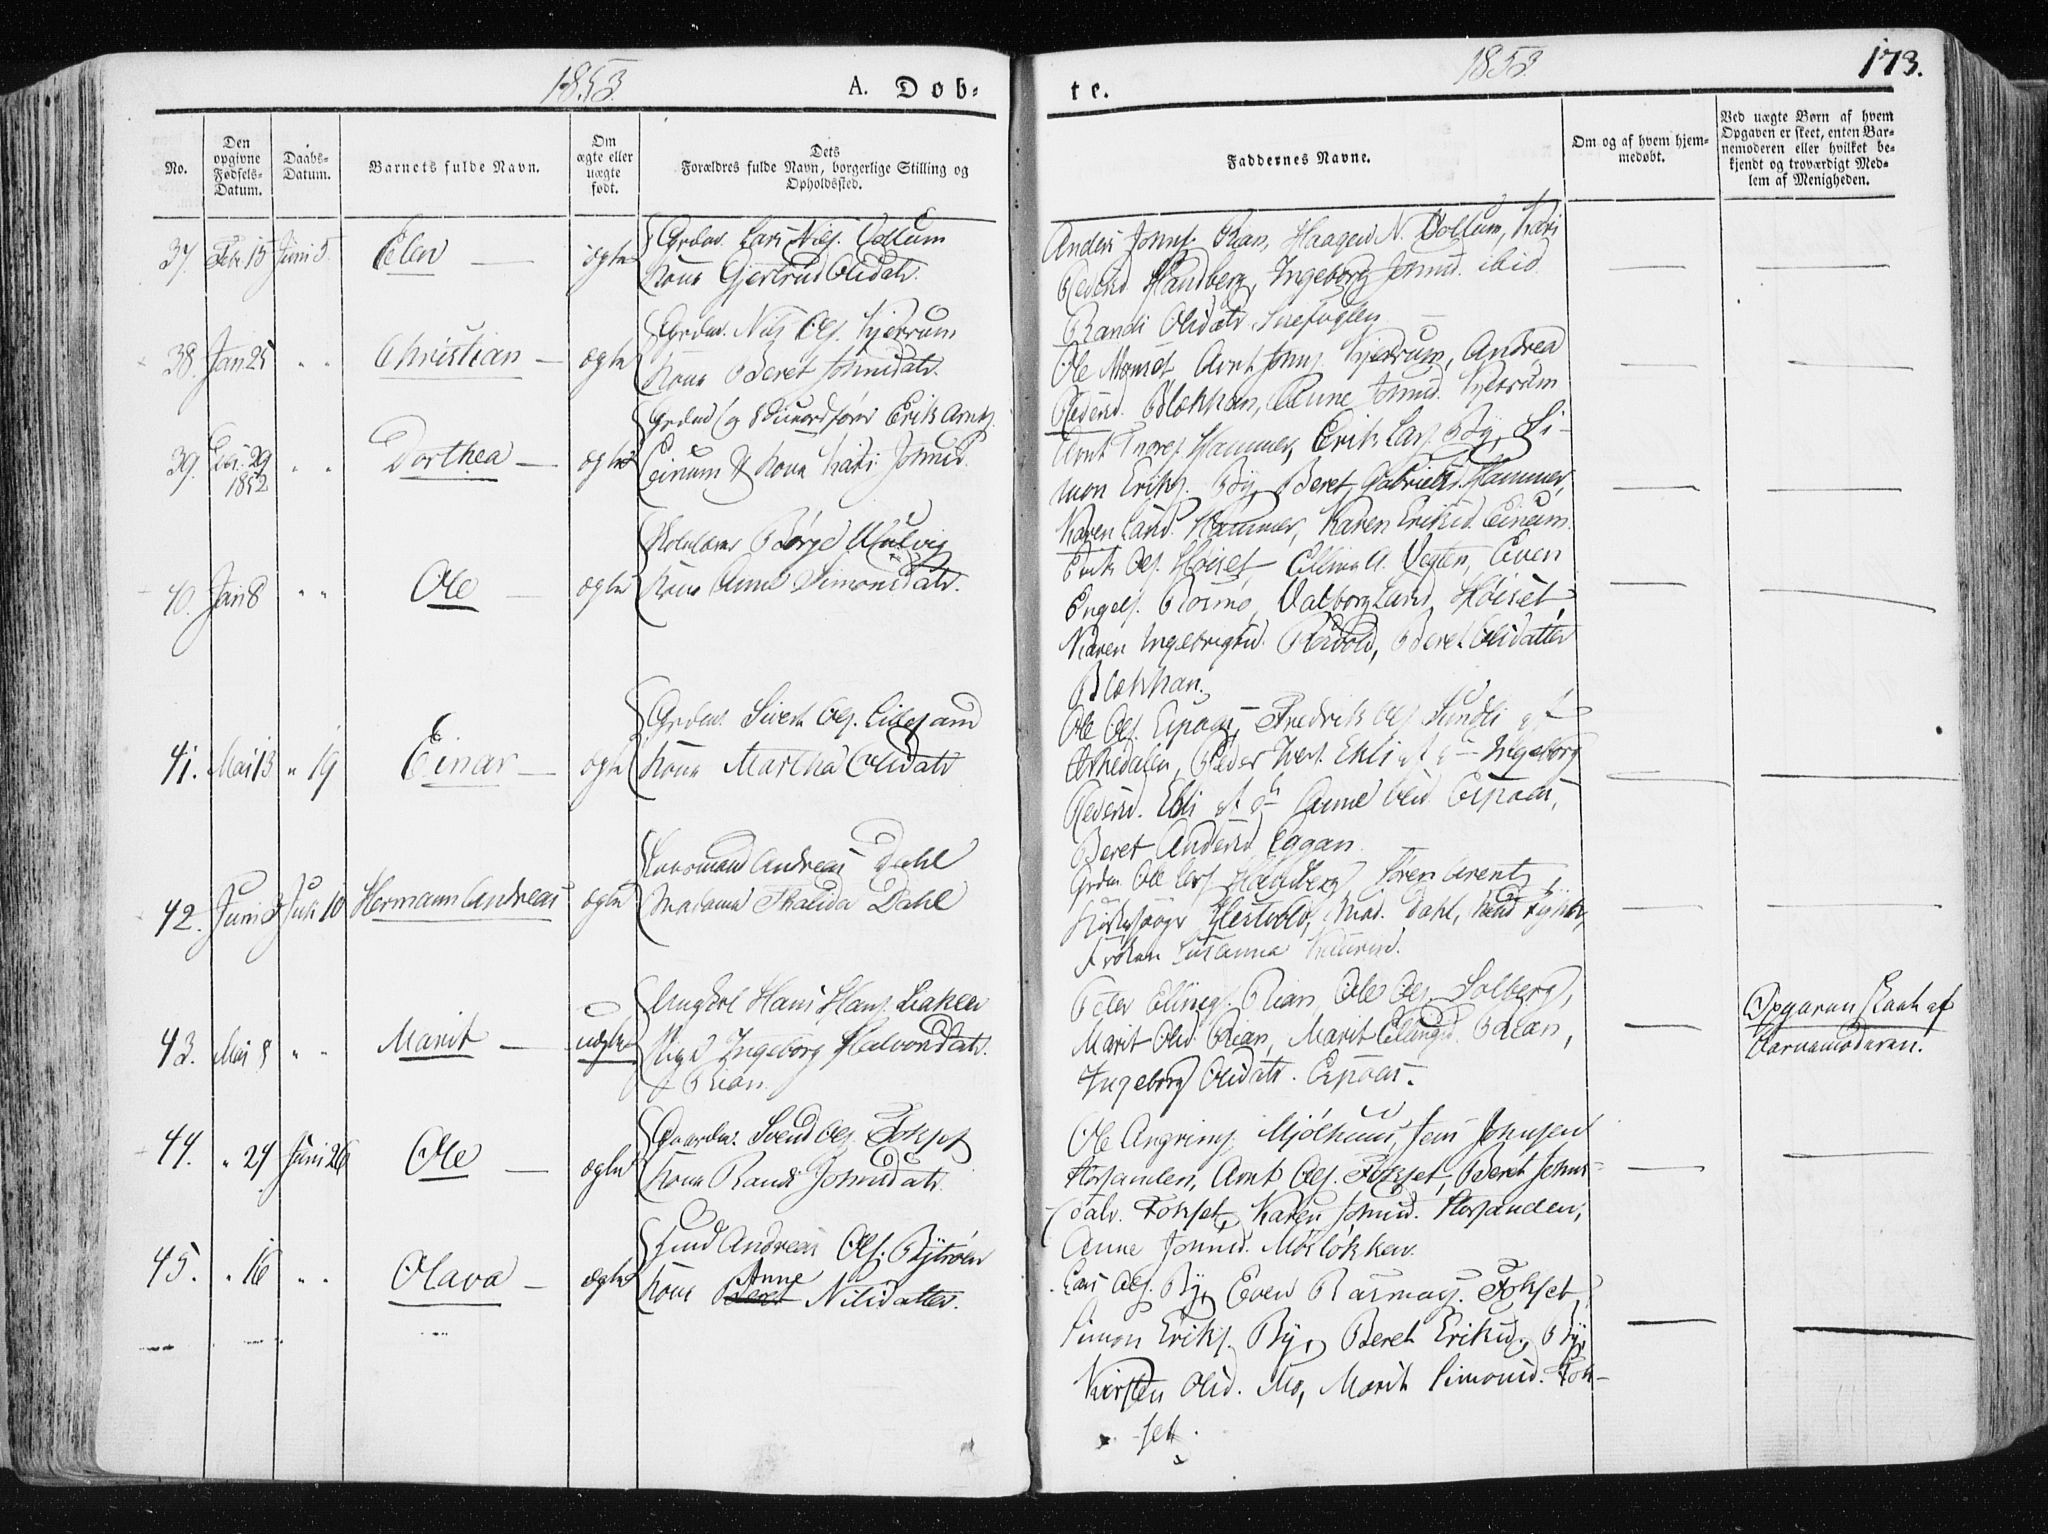 1853.
A. Døb-
te.
1853.
173.
No.
Den opgivne Fødsels-Datum.
Daabs-Datum.
Barnets fulde Navn.
Om ægte eller uægte født.
Dets Forældres fulde Navn, borgerlige Stilling og Opholdssted.
Faddernes Navne.
Om og af hvem hjem-medøbt.
Ved uægte Børn af hvem
Opgaven er skeet, enten Bar-
nemoderen eller hvilket be-
kjendt og troværdigt Med-
lem af Menigheden.
37. Febr. 15 Juni 5. Elen ægte
Grdm. Lars Nils. Vollum
Kone Gjertrud Olsdatr.
Anders Johns. Ran, Haagen N. Vollum, Kari
Pedersd. Sandberg, Ingeborg Johnsd. ibid
Randi Olsdatr.
38. Jan 25 " " Christian ægte
Grdm. Nils Ols. Kjerrum
Kone Beret Johnsdatr.
Ole Arnt Johns. Kjerrum, Andrea
Pedersd. Blokkan, Anne Johnsd. Kjerrum
39. 29 1852 " " Dorthea ægte
Grdm. og Erik Arnts.
Einum & Kone Kari Johnsd.
Arnt Hammer, Erik Lars. By, Si-
mon Eriks. By, Beret Gabrielsd. Hammer,
Karen Larsd. Hammer, Karen Eriksd. Einum.
40. Jan 8 " " Ole ægte
Børge Mulvig
Kone Anne Simonsdatr.
Erik Ols. Høiset, Elling A. Vegten, Even
Engels. Rosmo, Valborg Larsd. Høiset,
Karen Ingebrigtsd. Beret Olsdatter
Blokkan.
41. Mai 13 " 19 Einar ægte
Grdm. Sivert Ols. Lillesand
Kone Martha Olsdatr
Ole Ols. Espaas, Fredrik Ols. Sundli af
Orkedalen, Peder Ivers. Ekli af Ingeborg
Pedersd. Ekli af Anne Olsd. Espaas,
Beret Andersd. Eggan.
42. Juni 3 Juli 10 Hermann Andreas ægte
Andreas Dahl
Madame Thalida Dahl
Grdm. Ole Lars. Sandberg, Søren Arentz,
Mad. Dahl,
Frøken Susanna
43. Mai 8 " " Marit uægte
Ungkarl Hans Hans. Loaken
Pige Ingeborg Halvorsdatr.
Rian
Peter Ellings. Rian, Ole Ols. Solberg,
Marit Olsd. Rian, Marit Ellingsd. Rian,
Ingeborg Olsdatr. Espaas.
Opgaven skeet af
Barnemoderen.
44. " 24 Juni 26 Ole ægte
Gaardm. Svend Ols. Fokset
Kone Randi Johnsdatr.
Ole Angrims. Mjølhuus, Jens Johnsen
Horsanden, Arnt Ols. Fokset, Beret Johns-
datr. Fokset, Karen Johnsd. Horsanden,
Anne Johnsd. Moslokken
45. " 16 " " Olava ægte
Huusmd Andreas Ols. Bytrøen
Kone Beret Anne Nilsdatter.
Lars Ols. By, Even Rasmus. Fokset,
Simon Eriks. By, Beret Eriksd. By,
Kirsten Olsd. Mo, Marit Simonsd. Fok-
set.